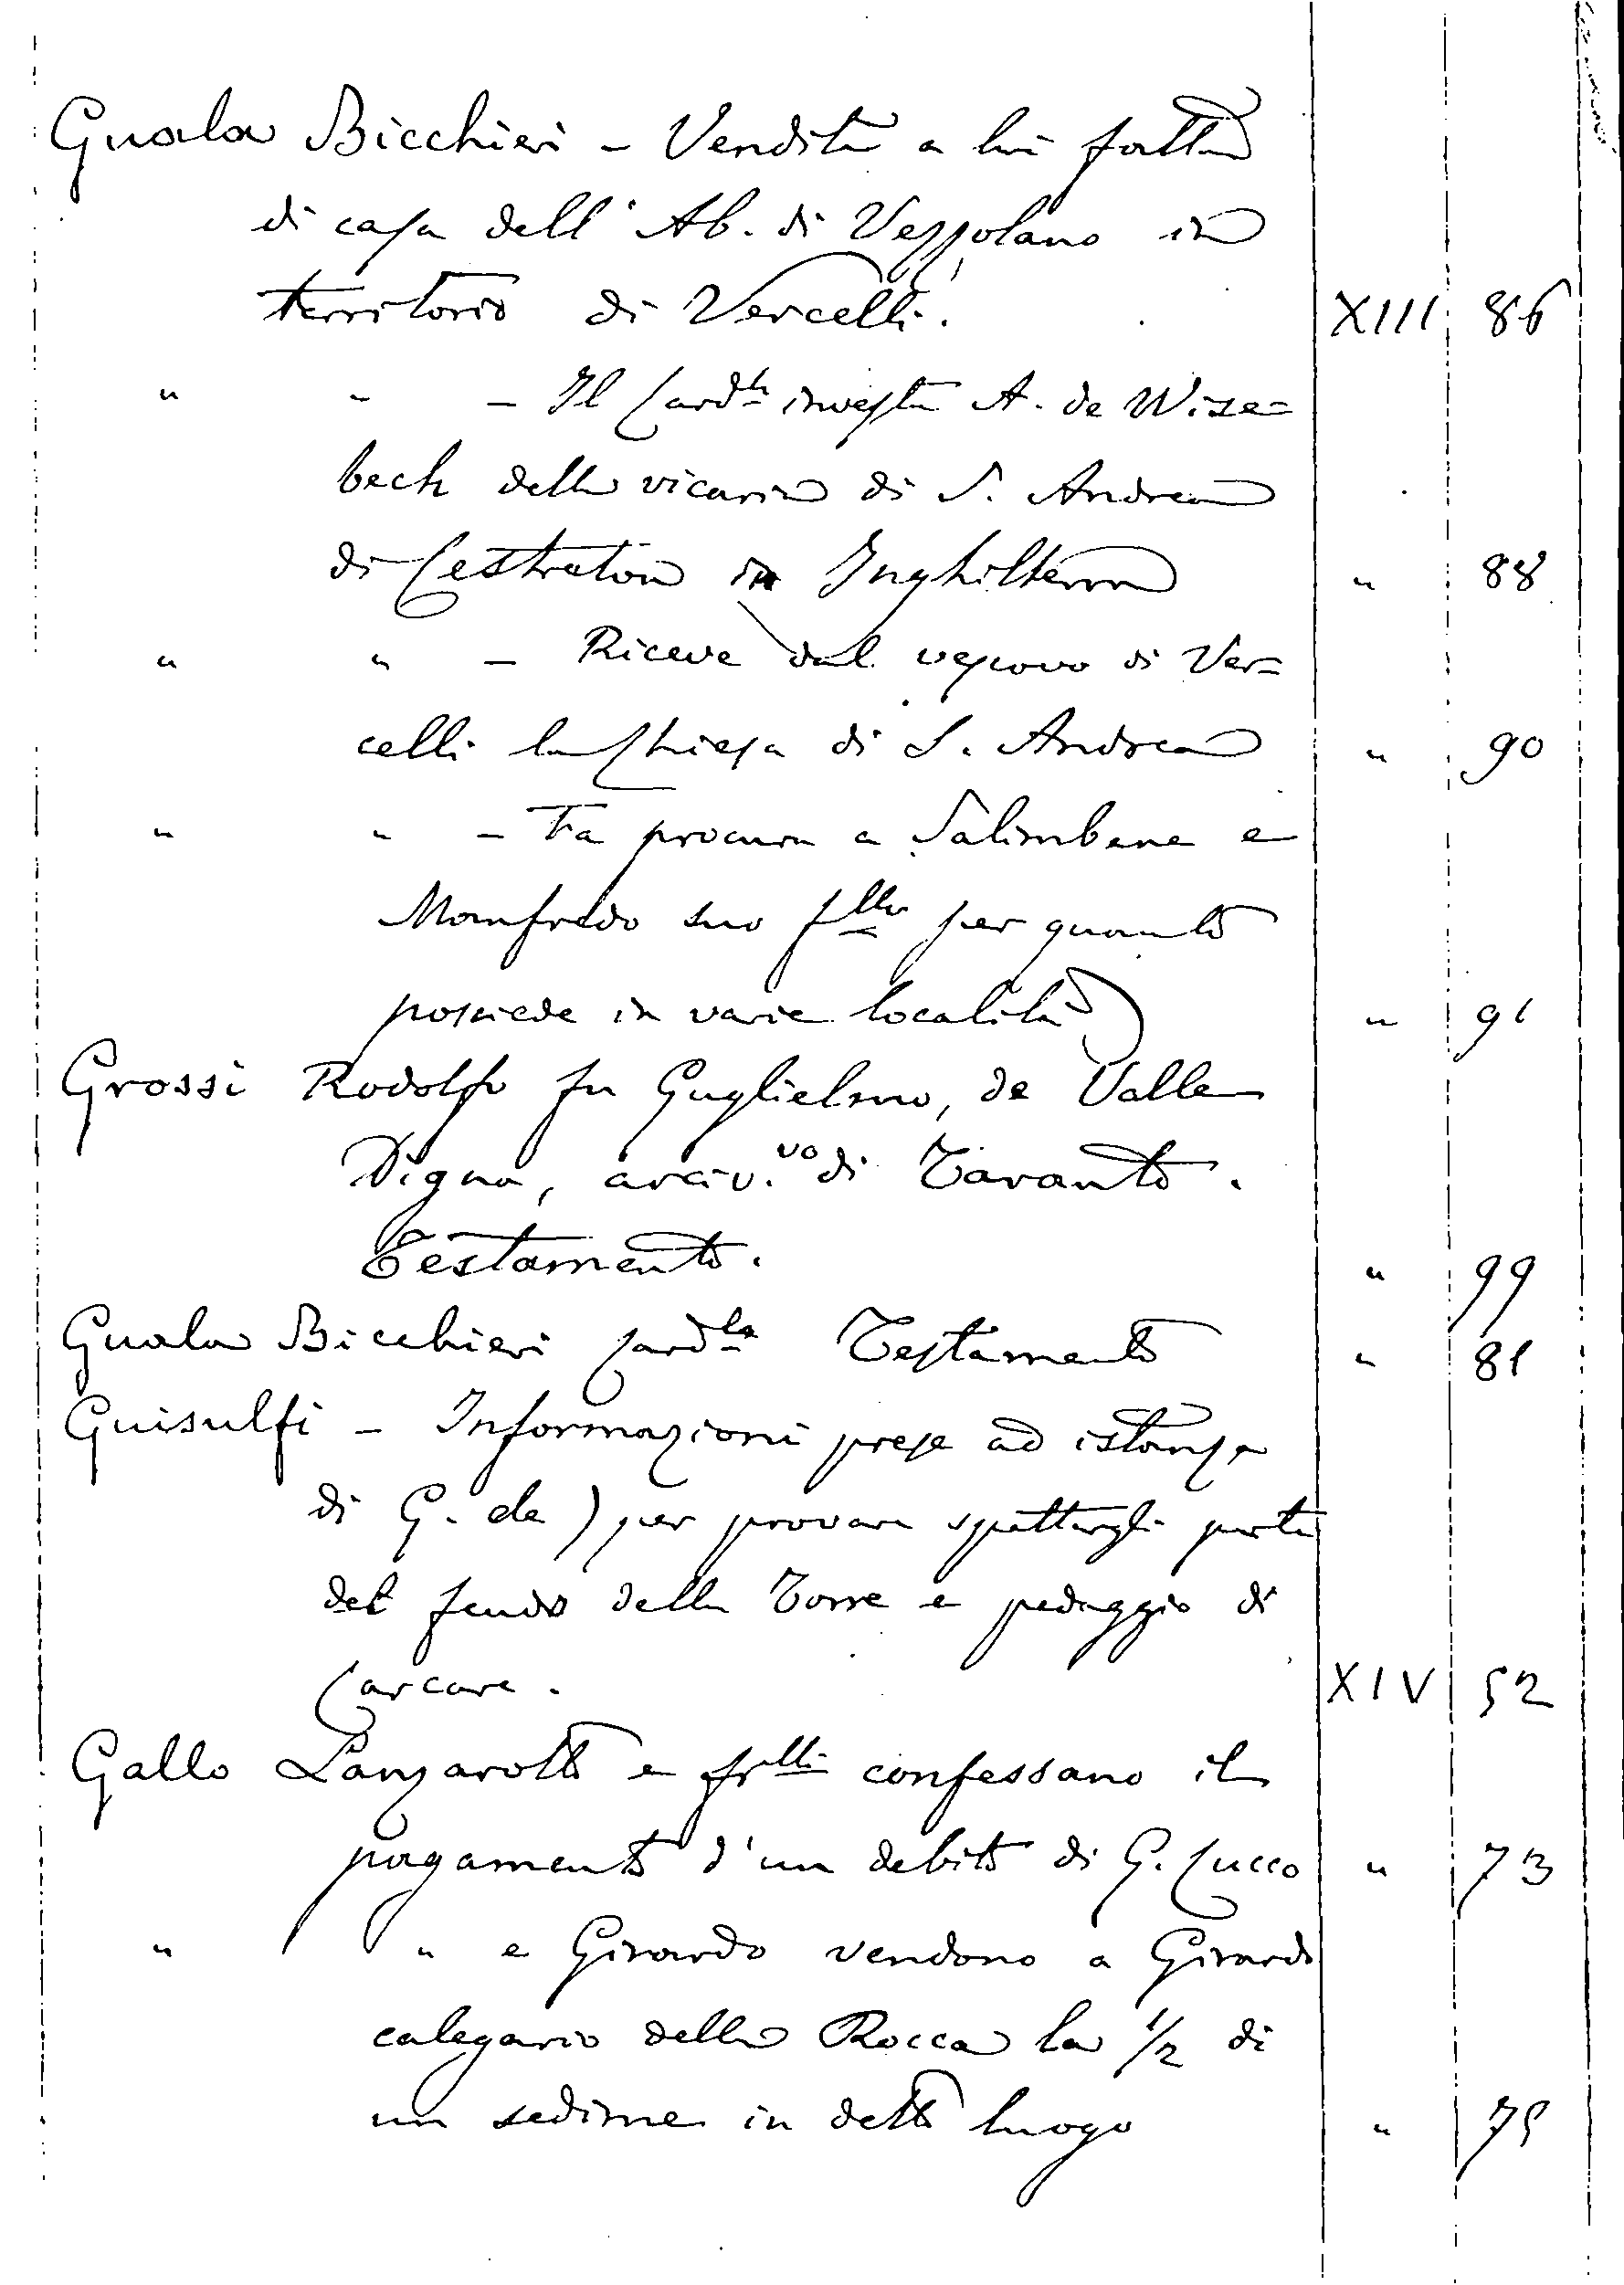 Guala Bicchieri - Vendita a lui fatta
di casa dell'Ab. di Vezzolano in
territorio di Vercelli. XIII 86
" " - Il Card.le investe A. de Wize=
bech della vicaria di S. Andrea
di Cestreton in Inghilterra " 88
" " - Riceve dal vescovo di Ver=
celli la Chiesa di S. Andrea " 90
" " - Fa procura a Salimbene e
Manfredo suo f.llo per quanto
possiede in varie località " 91
Grossi Rodolfo fu Guglielmo, de Valle
Digna, arciv.vo di Taranto.
Testamento. " 99
Guala Bicchieri Card.le Testamento " 81
Guisulfi - Informazioni prese ad istanza
di G. de) per provare spettargli parte
del feudo della Torre e pedaggio di
Carcare. XIV 52
Gallo Lanzarotto e fr.lli confessano il
pagamento d'un debito di G. Cucco " 73
" " e Girardo vendono a Girardo
calegario della Rocca la 1/2 di
un sedime in detto luogo " 75